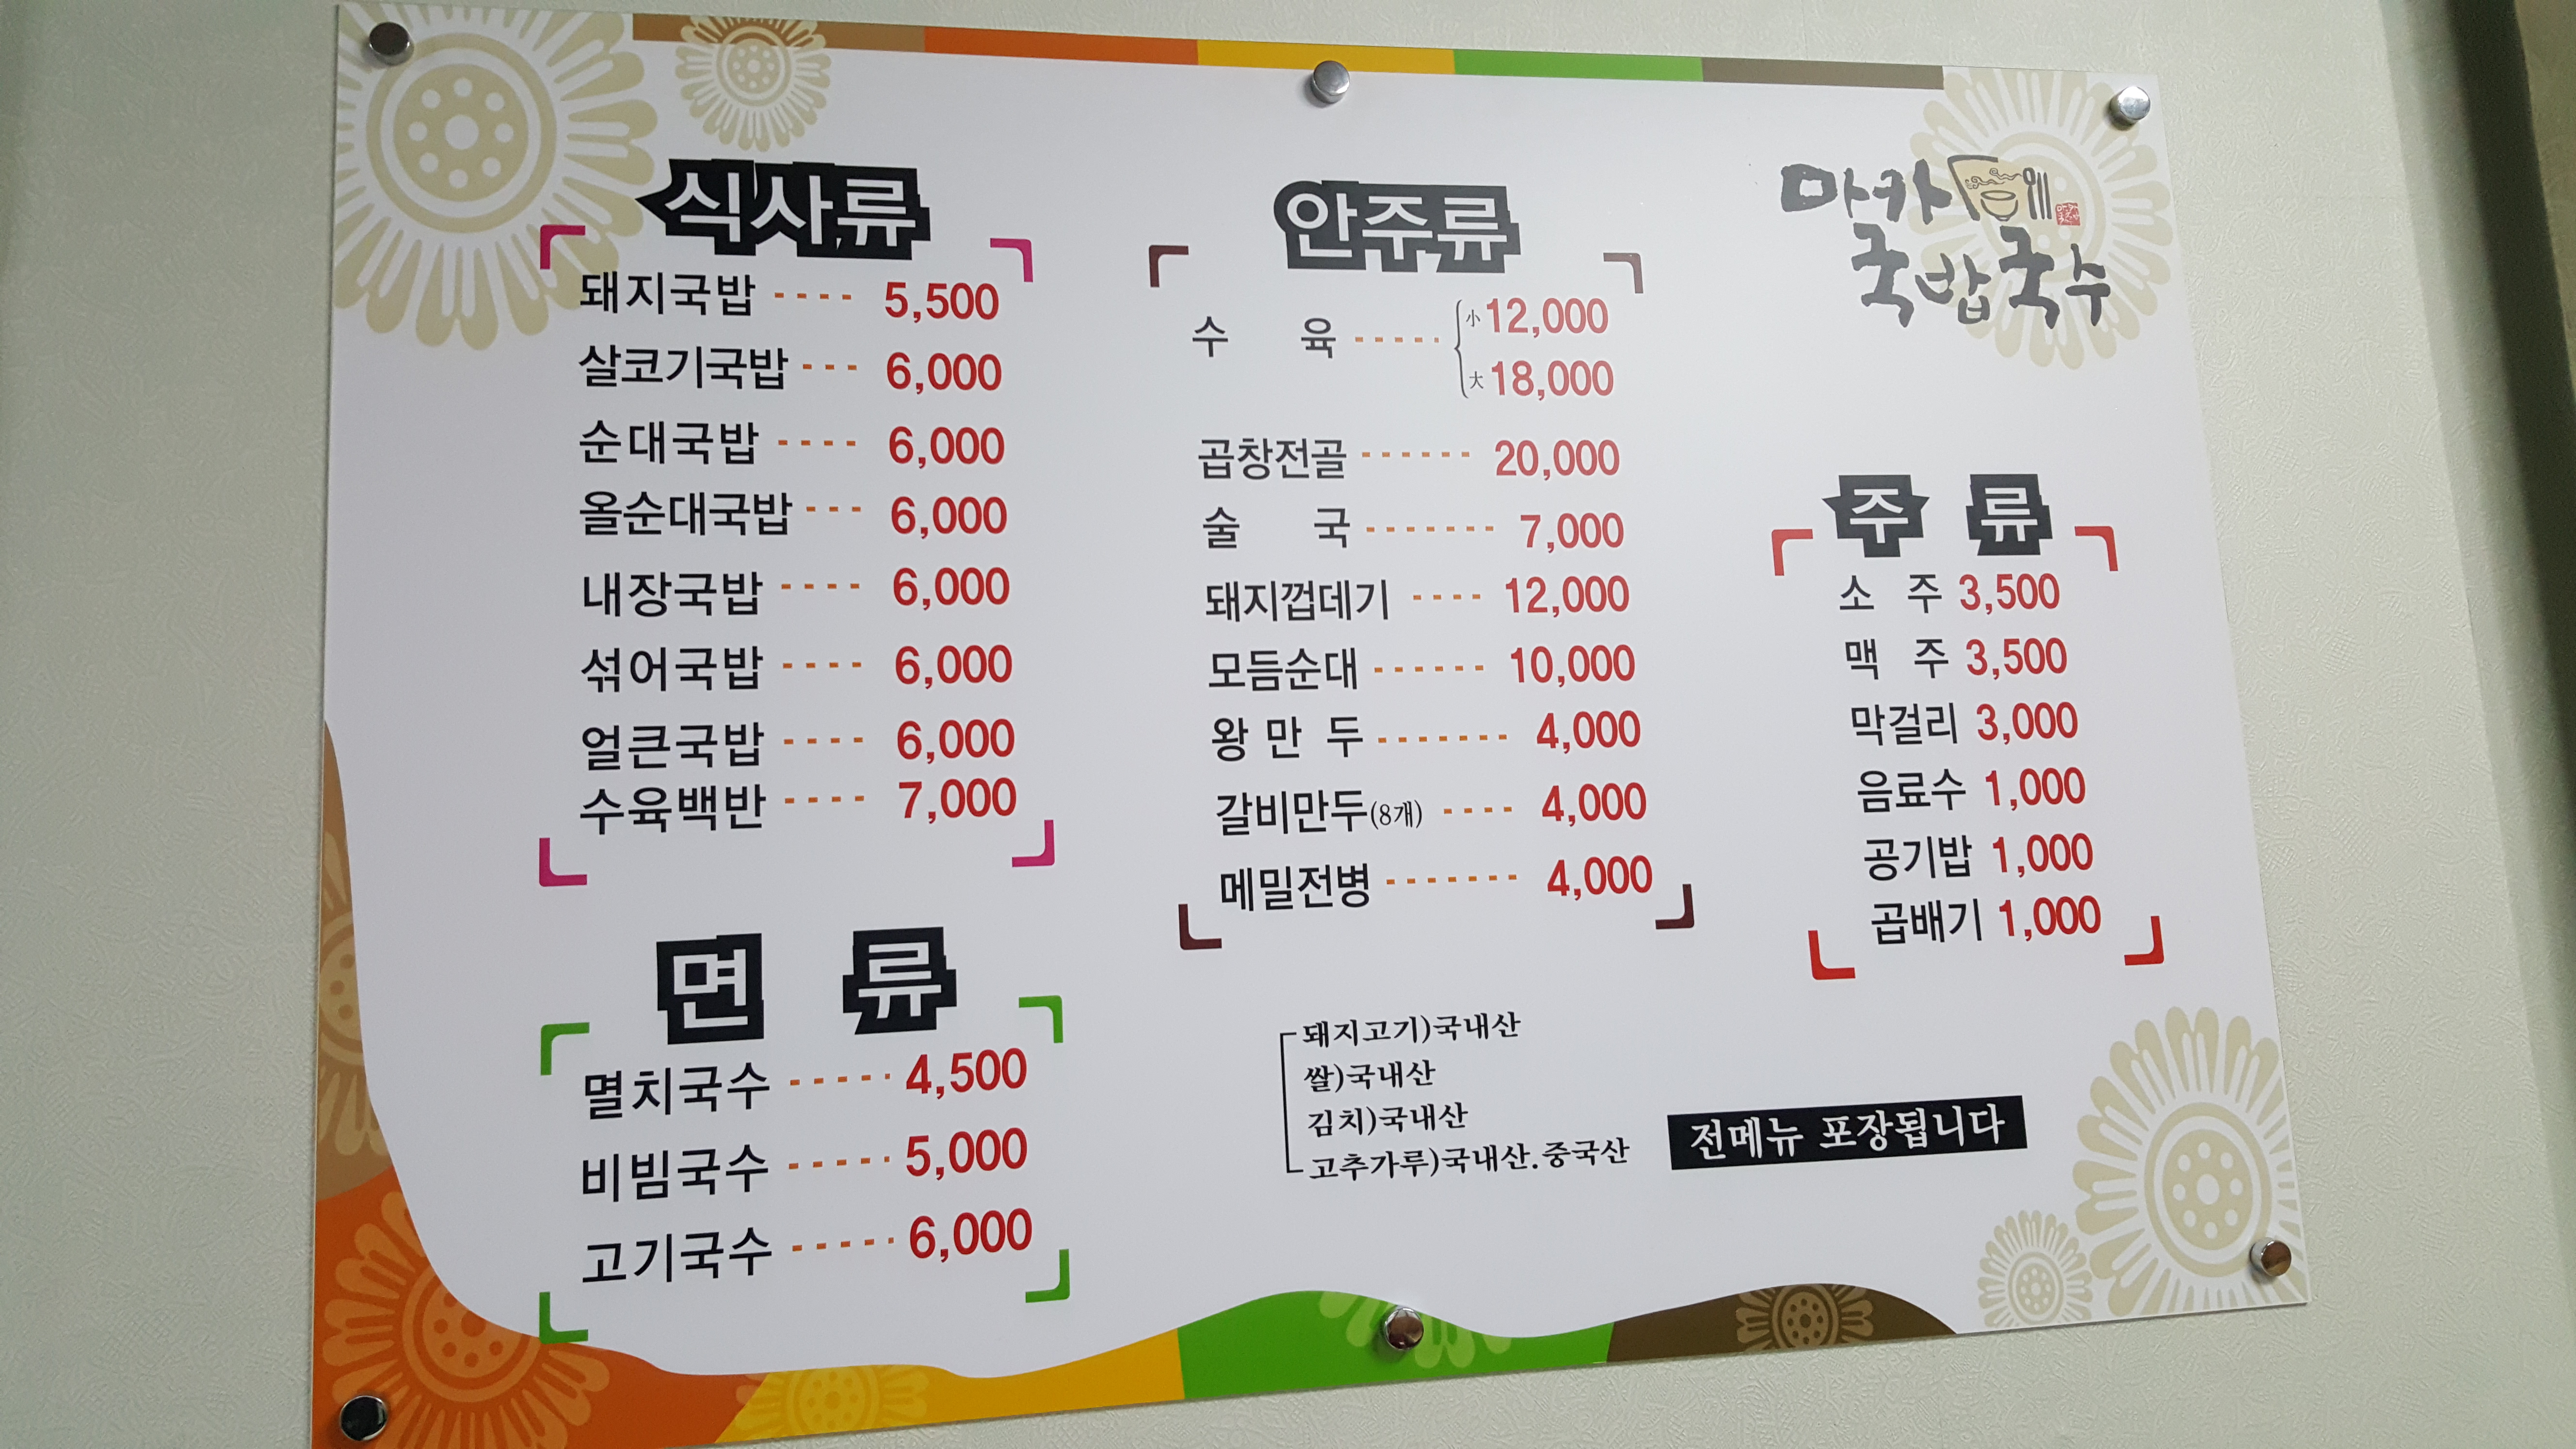 식사류
돼지국밥 ---- 5,500
살코기국밥 --- 6,000
순대국밥 ---- 6,000
올순대국밥 --- 6,000
내장국밥 ---- 6,000
섞어국밥 ---- 6,000
얼큰국밥 ---- 6,000
수육백반 ---- 7,000
면 류
멸치국수 ----- 4,500
비빔국수 ----- 5,000
고기국수 ----- 6,000
안주류
수 육 ----- 小 12,000
大 18,000
곱창전골 ------ 20,000
술 국 ------- 7,000
돼지껍데기 ---- 12,000
모듬순대 ------ 10,000
왕 만 두 ------- 4,000
갈비만두(8개) ---- 4,000
메밀전병 ------- 4,000
돼지고기)국내산
쌀)국내산
김치)국내산
고추가루)국내산.중국산
마카
국밥국수
주 류
소 주 3,500
맥 주 3,500
막걸리 3,000
음료수 1,000
공기밥 1,000
곱배기 1,000
전메뉴 포장됩니다